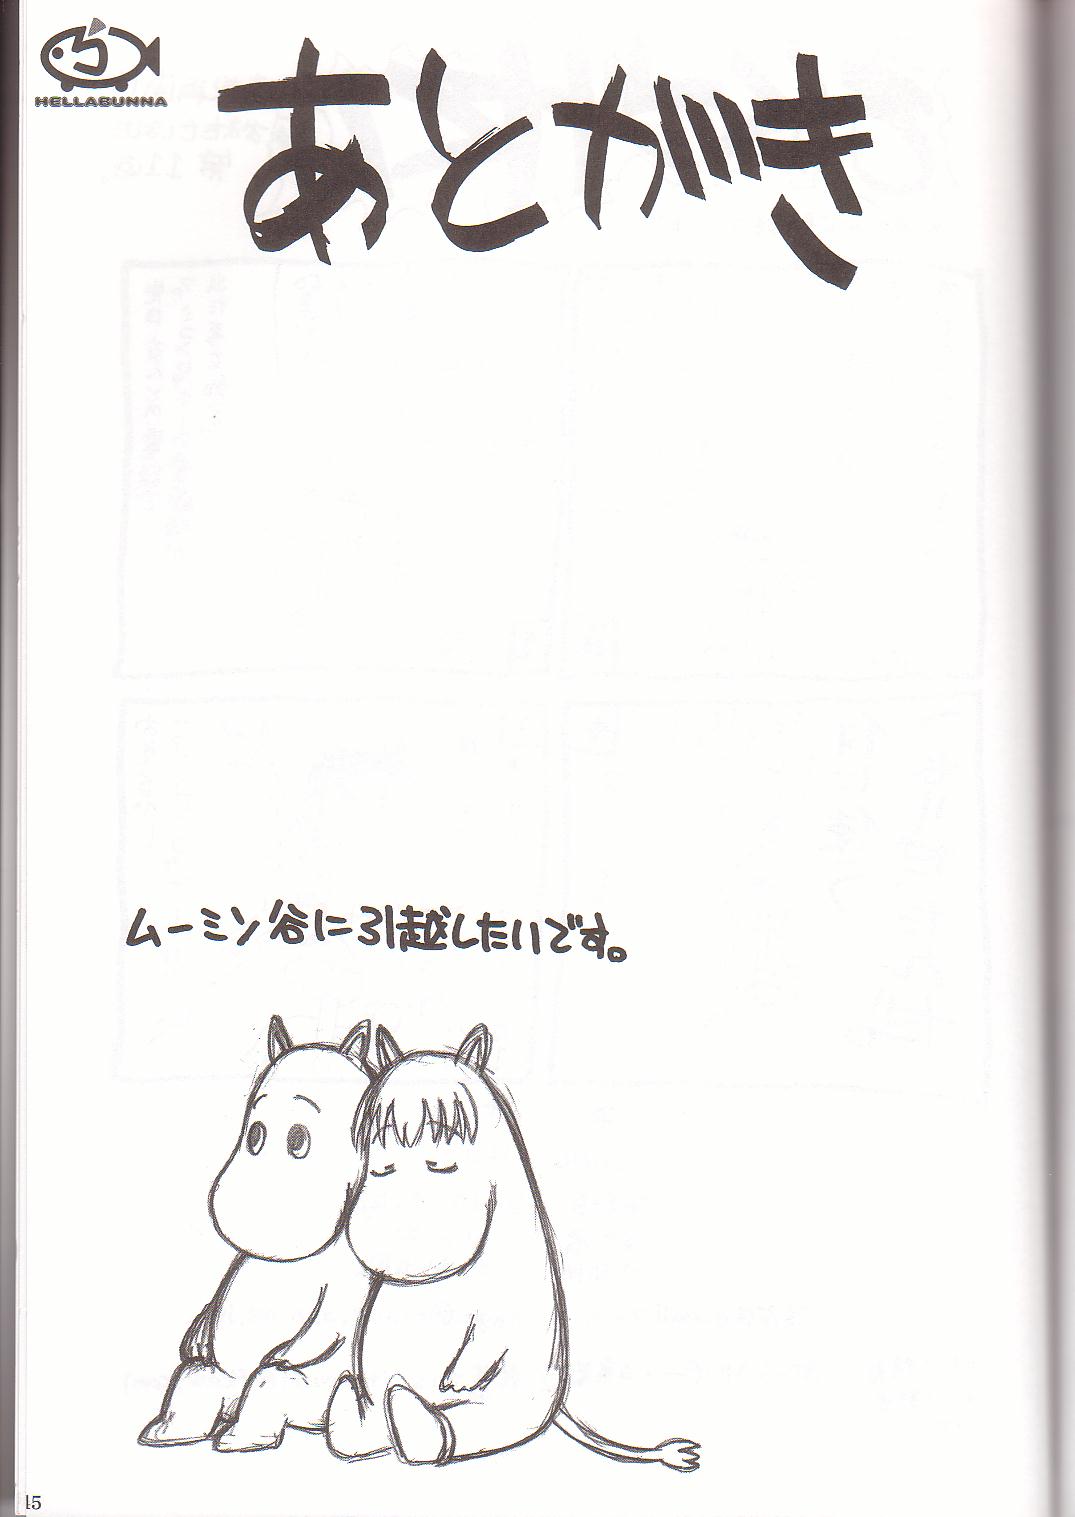 HELLABUNNA
あとがき
ムーミン谷に引越したいです。